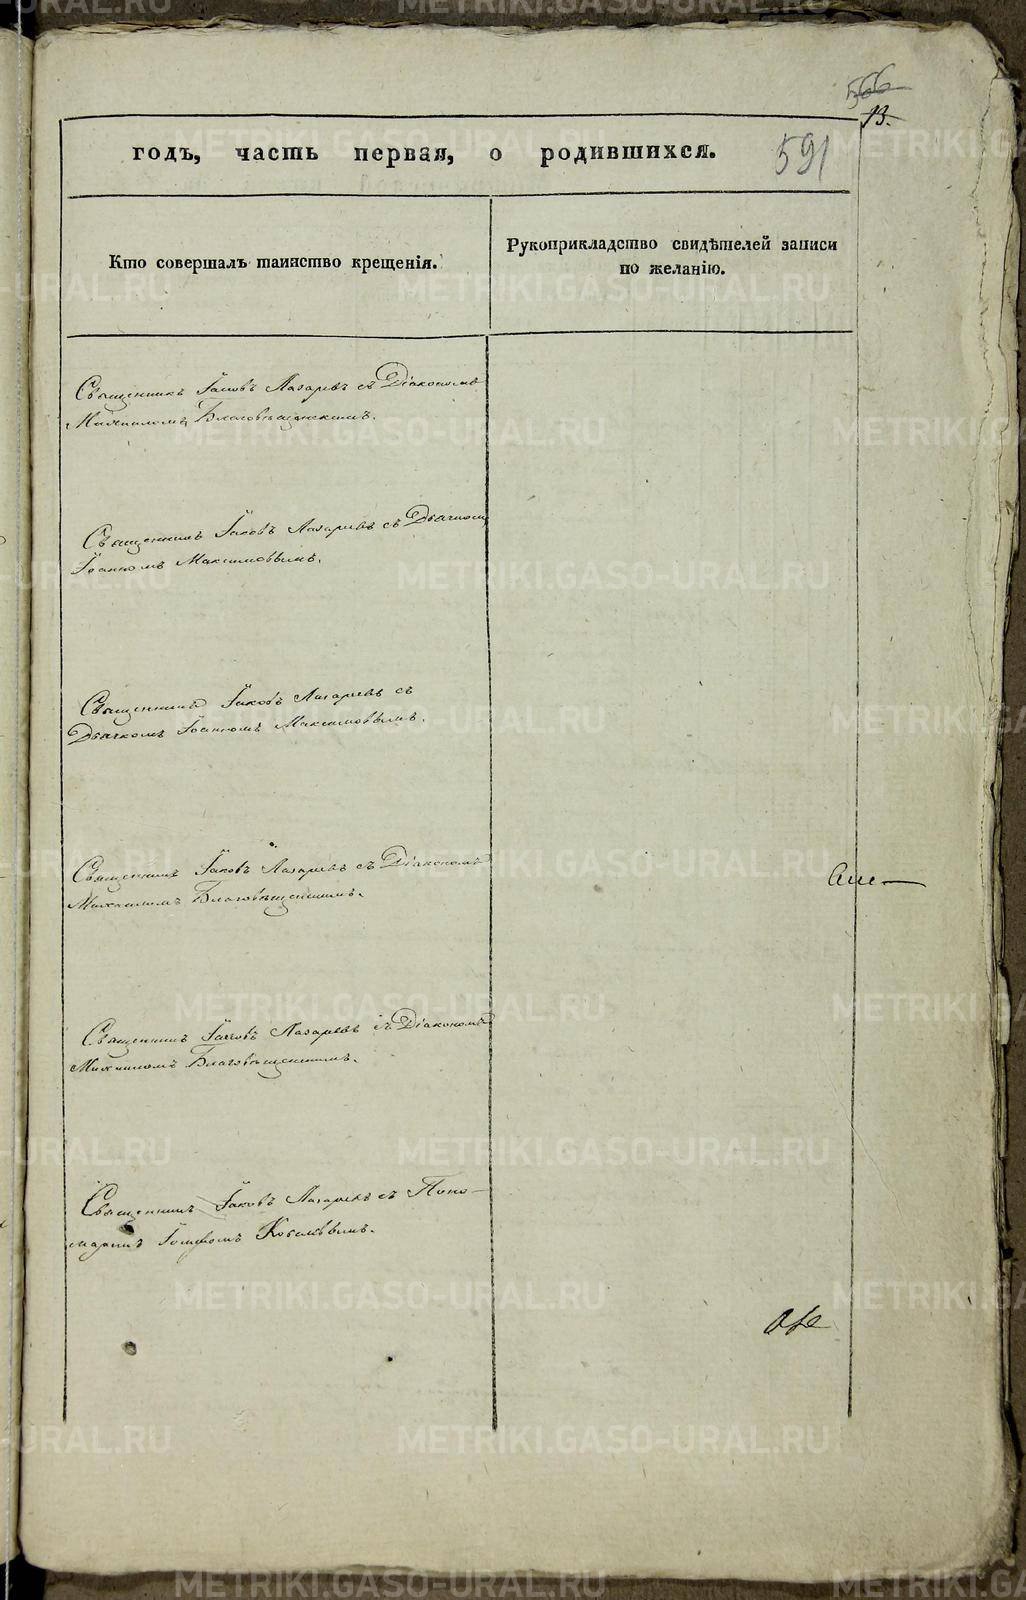 566
13.
годъ, часть первая, о родившихся.
591
Кто совершалъ таинство крещенія.
Рукоприкладство свидѣтелей записи
по желанію.
Священникъ Іаковъ Лазаревъ съ Діакономъ
Михаиломъ Благовѣщенскимъ.
Священникъ Іаковъ Лазаревъ съ Дьячкомъ
Іоанномъ Максимовымъ.
Священникъ Іаковъ Лазаревъ съ
Дьячкомъ Іоанномъ Максимовымъ.
Священникъ Іаковъ Лазаревъ съ Діакономъ
Михаиломъ Благовѣщенскимъ.
Священникъ Іаковъ Лазаревъ съ Діакономъ
Михаиломъ Благовѣщенскимъ.
Священникъ Іаковъ Лазаревъ съ Поно-
маремъ
METRIKI.GASO-URAL.RU